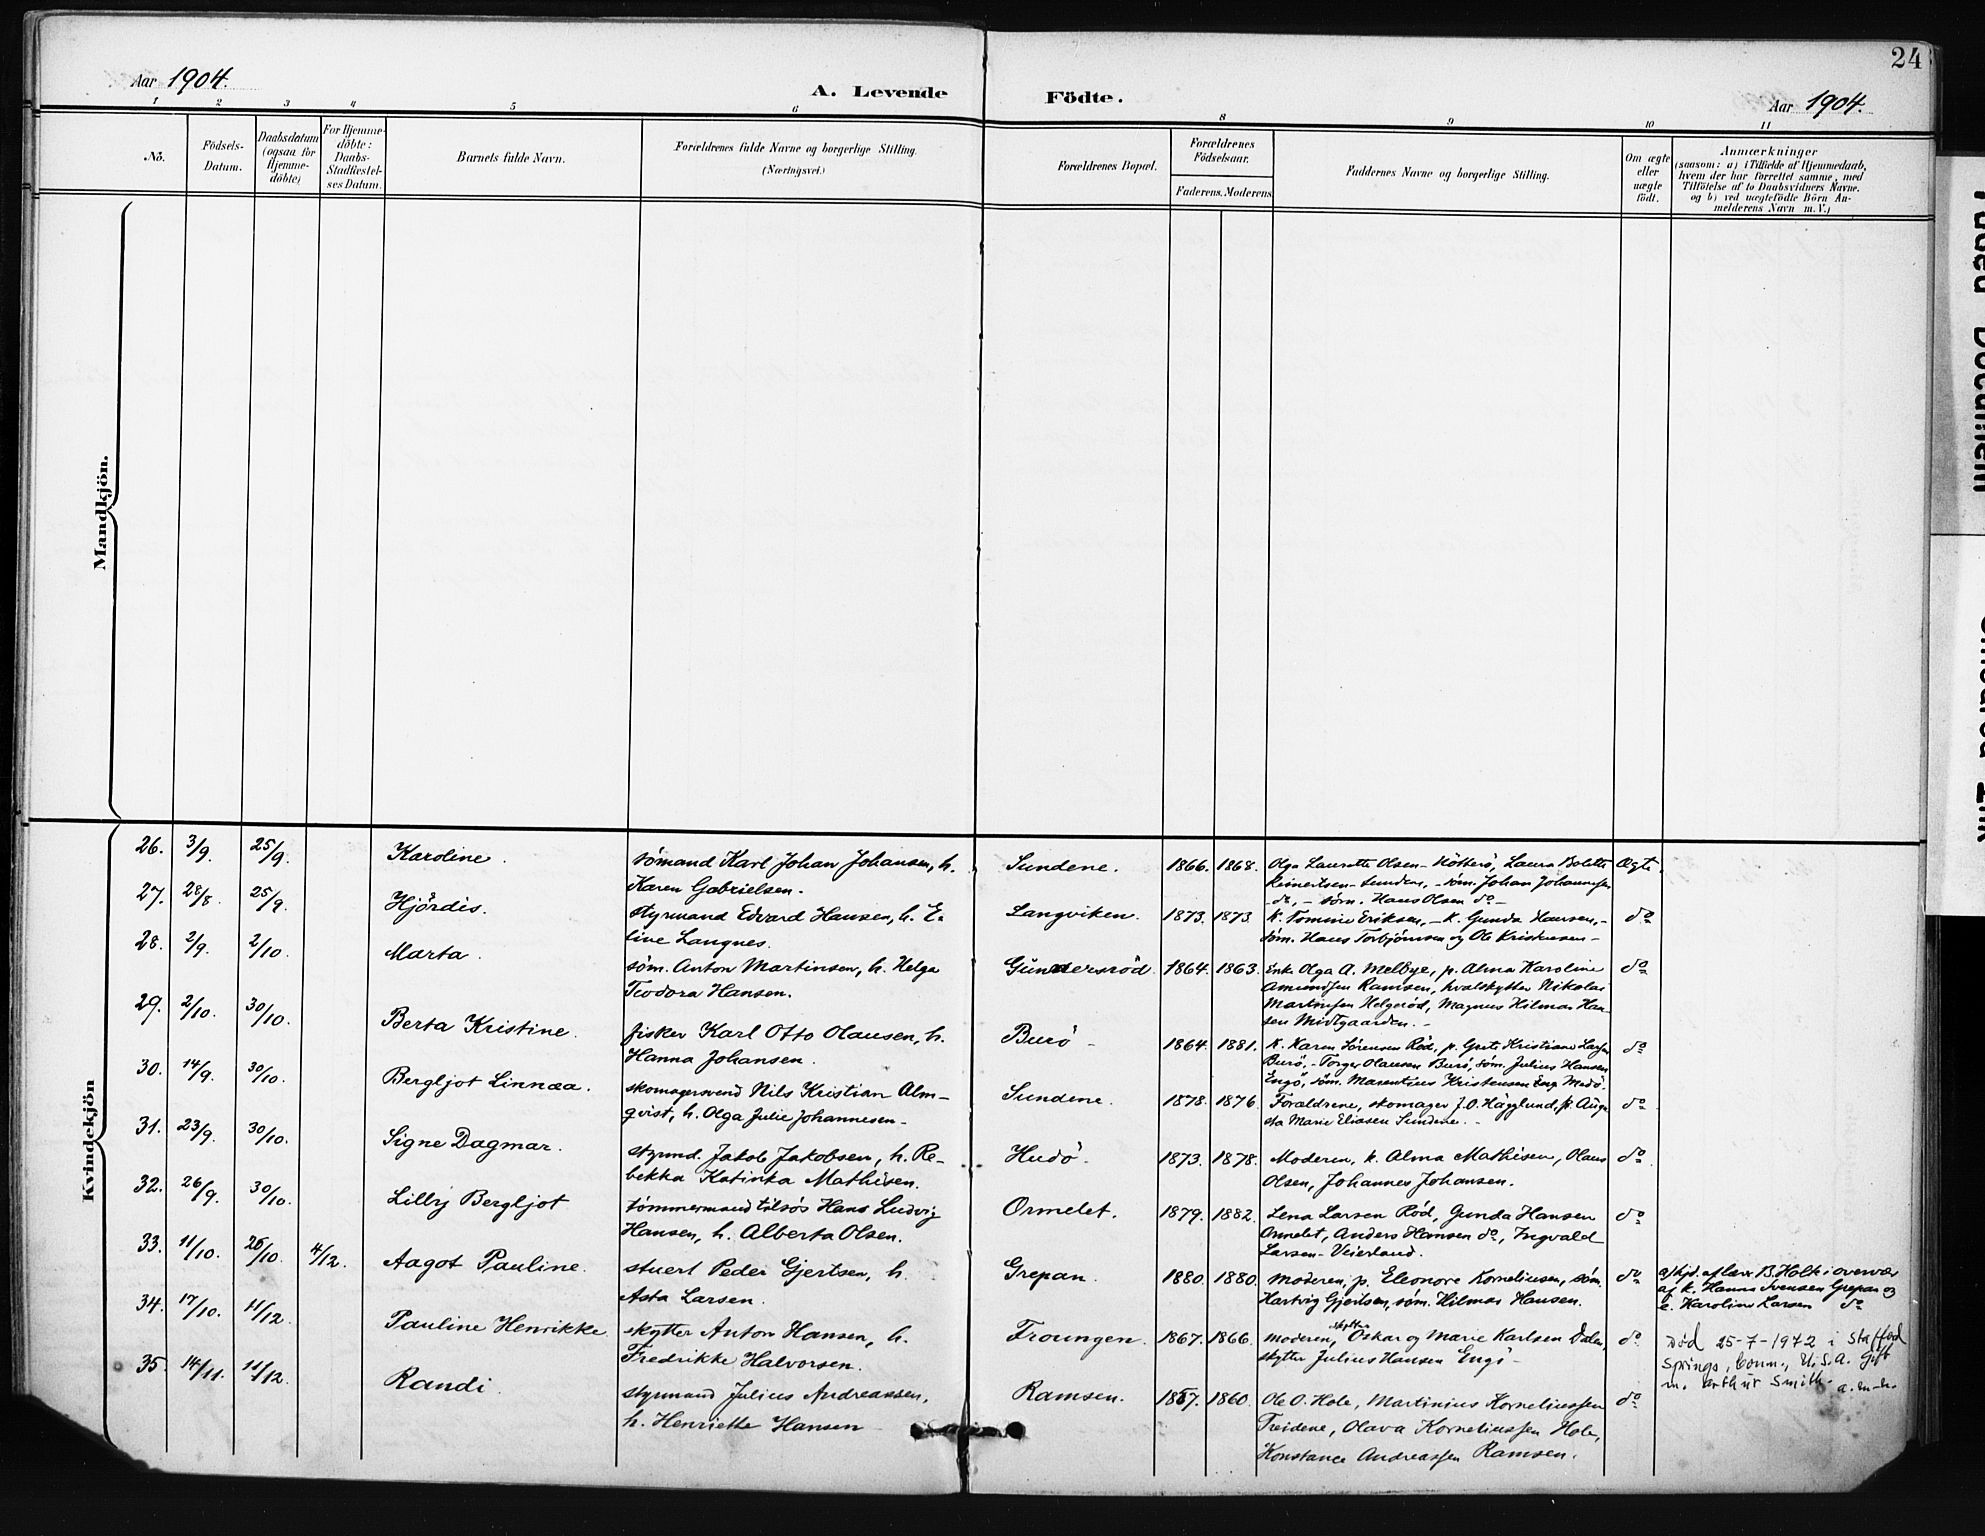 24
Aar 1904.
A. Levende Födte.
Aar 1904.
1 2 3 4 5 6 8 9 10 11
No.
Födsels-
Datum.
Daabsdatum
(ogsaa for
Hjemme-
döbte)
For Hjemme-
döbte:
Daabs-
Stadfæstel-
ses Datum.
Barnets fulde Navn.
Forældrenes fulde Navne og borgerlige Stilling.
(Næringsvei.)
Forældrenes Bopæl.
Forældrenes
Födselsaar.
Faderens. Moderens
Faddernes Navne og borgerlige Stilling.
Om ægte
eller
uægte
födt.
Anmærkninger
(saasom: a) i Tilfælde af Hjemmedaab,
hvem der har forrettet samme, med
Tilföielse af to Daabsvidners Navne.
og b) ved uægtefödte Börn An-
melderens Navn m. V.)
Mandkjön.
Kvindekjön
26. 3/9. 25/9. Karoline. sömand Karl Johan Johansen, h.
Karen Gabrielsen.
Sundene. 1866. 1868. Olga Laurette Olsen Laura Bolette Ægte.
Reinertsen - Sunden, - söm. Johan Johannesen
do, - söm. Hans Olsen do -
27. 28/8. 25/9. Hjördis. styrmand Edvard Hansen, h. E-
line Langnes.
Langviken. 1873. 1873. k. Tomine Eriksen, - k. Gunda Hansen, - do
söm. Hans Torbjörnsen og Ole Kristensen -
28. 2/9. 2/10. Marta. söm. Anton Martinsen, h. Helga
Teodora Hansen.
Gunnersröd. 1864. 1863. Enk. Olga A. Melbye, p. Alma Karoline do
Amundsen Ramsen, hvalskytter Nikolai
Martinsen Helgeröd, Magnus Hilmar Han-
sen Midtgaarden. -
29. 2/10. 30/10. Berta Kristine. fisker Karl Otto Olausen, h.
Hanna Johansen.
Burö - 1864. 1881. k. Karen Sörensen Röd, p. Grete Kristiane Larsen do
Burö, - Torger Olausen Burö, söm. Julius Hansen
Engö, söm. Marentius Kristensen Eng Medö.
30. 14/9. 30/10. Bergljot Linnæa. skomagersvend Nils Kristian Alm-
qvist, h. Olga Julie Johannesen -
Sundene. 1878. 1876. Forældrene, skomager J. O. Hägglund, p. Augu- do
sta Marie Eliasen Sundene. -
31. 23/9. 30/10. Signe Dagmar. styrmd. Jakob Jakobsen, h. Re-
bekka Katinka Mathisen.
Hudö. 1873. 1878. Moderen, k. Alma Mathisen, Olaus do
Olsen, Johannes Johansen.
32. 26/9. 30/10. Lilly Bergljot tömmermand tilsös Hans Ludvig
Hansen, h. Alberta Olsen.
Ormelet. 1879. 1882. Lena Larsen Röd, Gunda Hansen do
Ormelet, Anders Hansen do, Ingvald
Larsen - Veierland.
33. 11/10. 26/10. 4/12. Aagot Pauline. stuert Peder Gjertsen, h.
Asta Larsen.
Grepan. 1880. 1880. Moderen, p. Eleonore Korneliusen, söm. do
Hartvig Gjertsen, söm. Hilmar Hansen.
af hjd. af lærer B. Holk i overvær
af k. Hanna Svensen Grepan og
e. Karoline Larsen do
34. 17/10. 11/12. Pauline Henrikke skytter Anton Hansen, h.
Fredrikke Halvorsen.
Froungen. 1867. 1866. Moderen, skytter Oskar og Marie Karlsen Dalen, do
skytter Julius Hansen Engö -
Död 25-7-1972 i Stafford
Springs, Conn., U.S.A. Gift
m. Arthur Smith.
35. 14/11. 11/12. Randi. styrmand Julius Andreassen,
h. Henriette Hansen
Ramsen. 1857. 1860. Ole O. Hole, Martinius Korneliussen do
Treidene, Olava Korneliussen Hole,
Konstance Andreassen Ramsen.